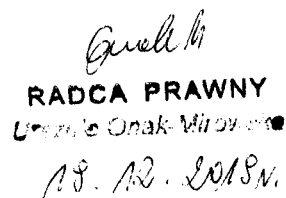 RADCA PRAWNY
Urszula Onak-Mirowska
19. 12. 2019 r.